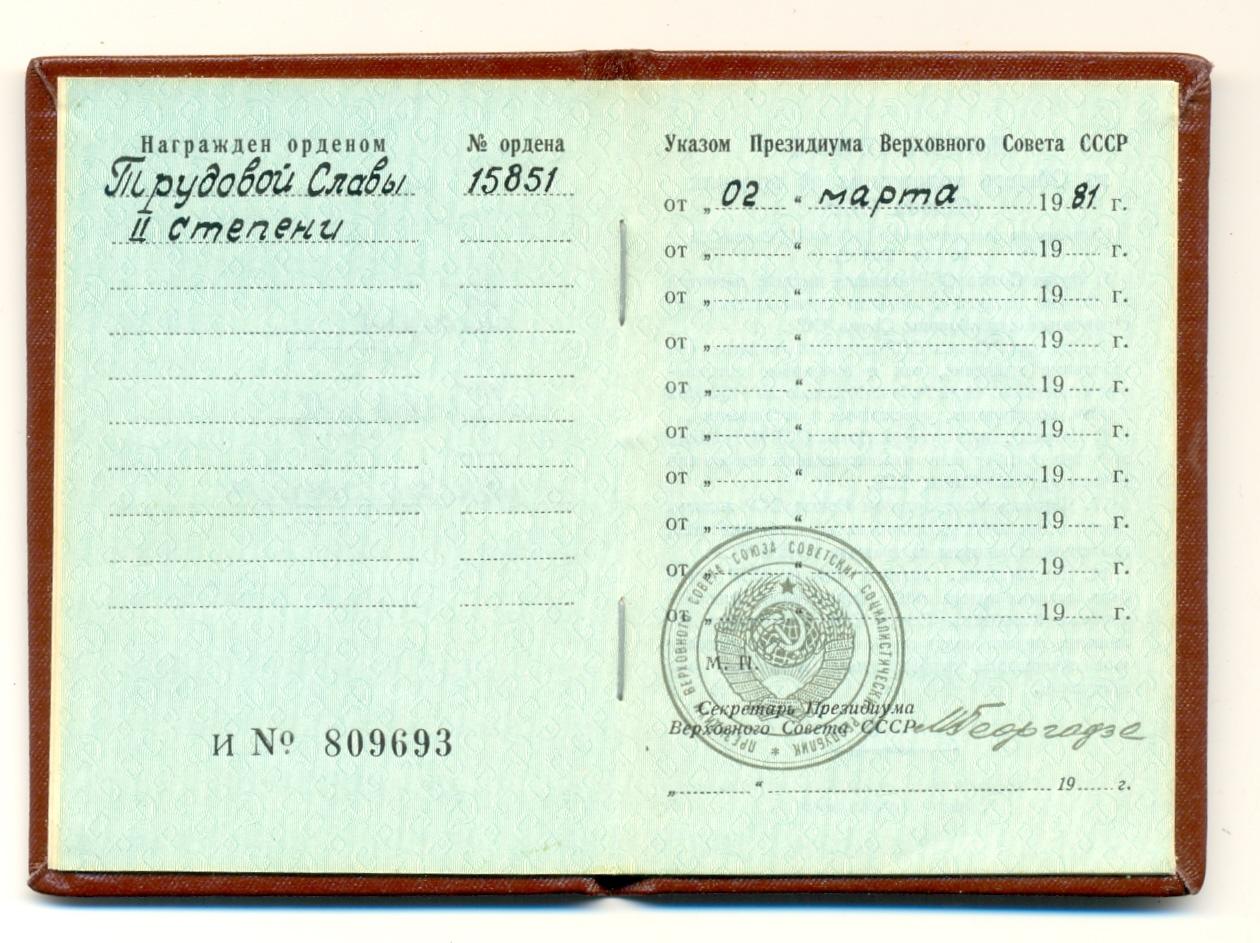 Награжден орденом
Трудовой Славы
II степени
№ ордена
15851
И № 809693
Указом Президиума Верховного Совета СССР
от „ 02 “ марта 1981 г.
от „ “ 19 г.
от „ “ 19 г.
от „ “ 19 г.
от „ “ 19 г.
от „ “ 19 г.
от „ “ 19 г.
от „ “ 19 г.
от „ “ 19 г.
от „ “ 19 г.
ПРЕЗИДИУМ ВЕРХОВНОГО СОВЕТА СОЮЗА СОВЕТСКИХ СОЦИАЛИСТИЧЕСКИХ РЕСПУБЛИК *
М. П.
Секретарь Президиума
Верховного Совета СССР МГеоргадзе
„ “ 19 г.